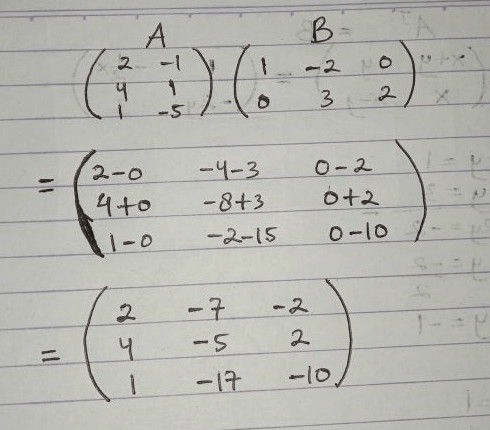 A B
( 2 -1 ) · ( 1 -2 0 )
( 4 1 ) ( 0 3 2 )
( 1 -5 )
= ( 2-0 -4-3 0-2 )
( 4+0 -8+3 0+2 )
( 1-0 -2-15 0-10 )
= ( 2 -7 -2 )
( 4 -5 2 )
( 1 -17 -10 )